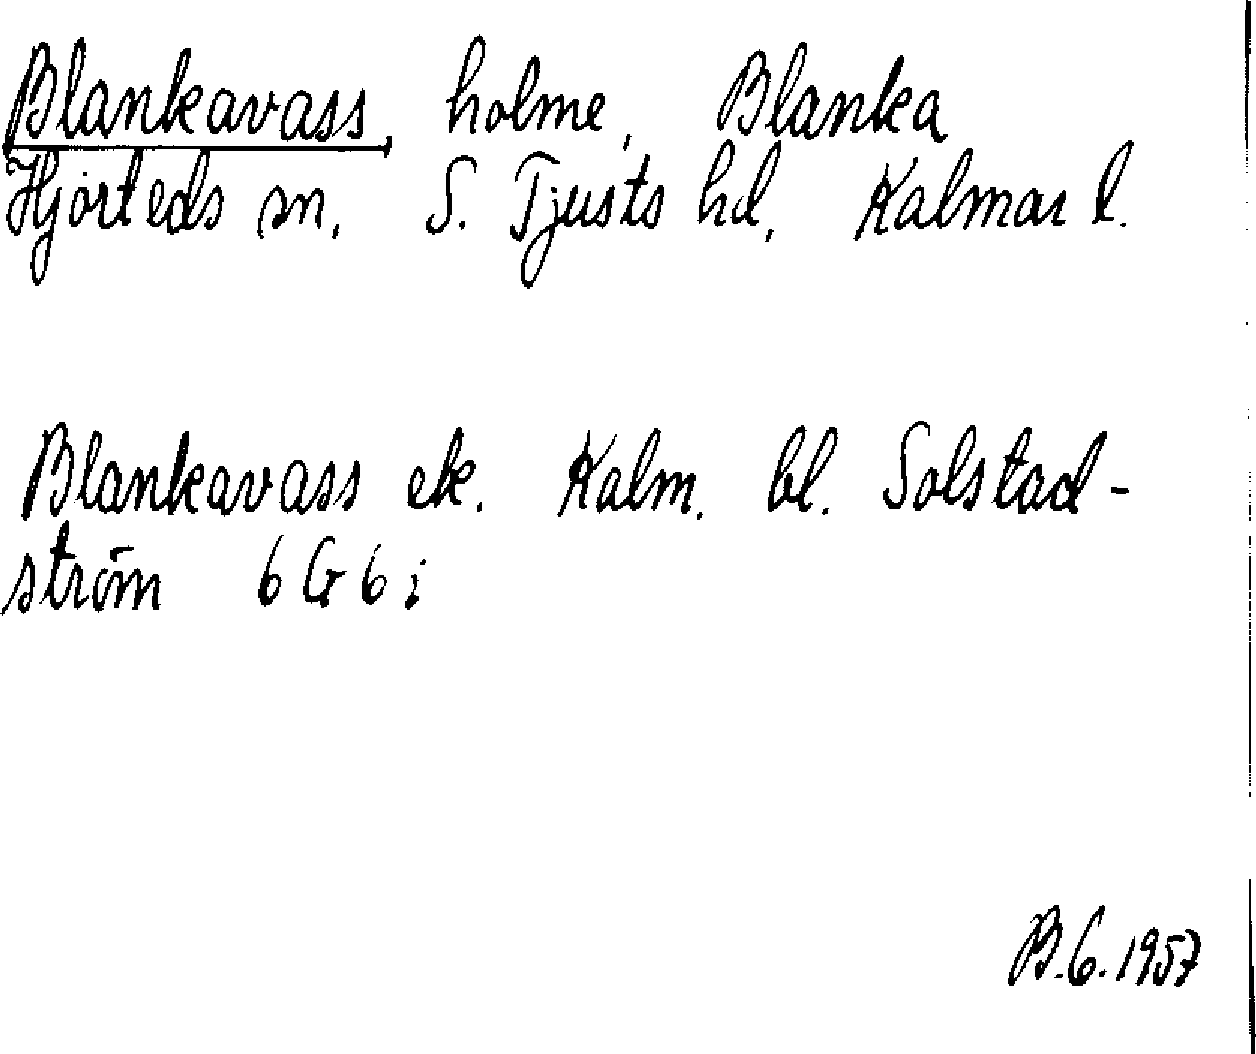 Blankavass, holme, Blanka
Hjorteds sn, S. Tjusts hd, Kalmar l.
Blankavass ek. Kalm. bl. Solstad-
ström 6 G 6 i
B.G. 1957